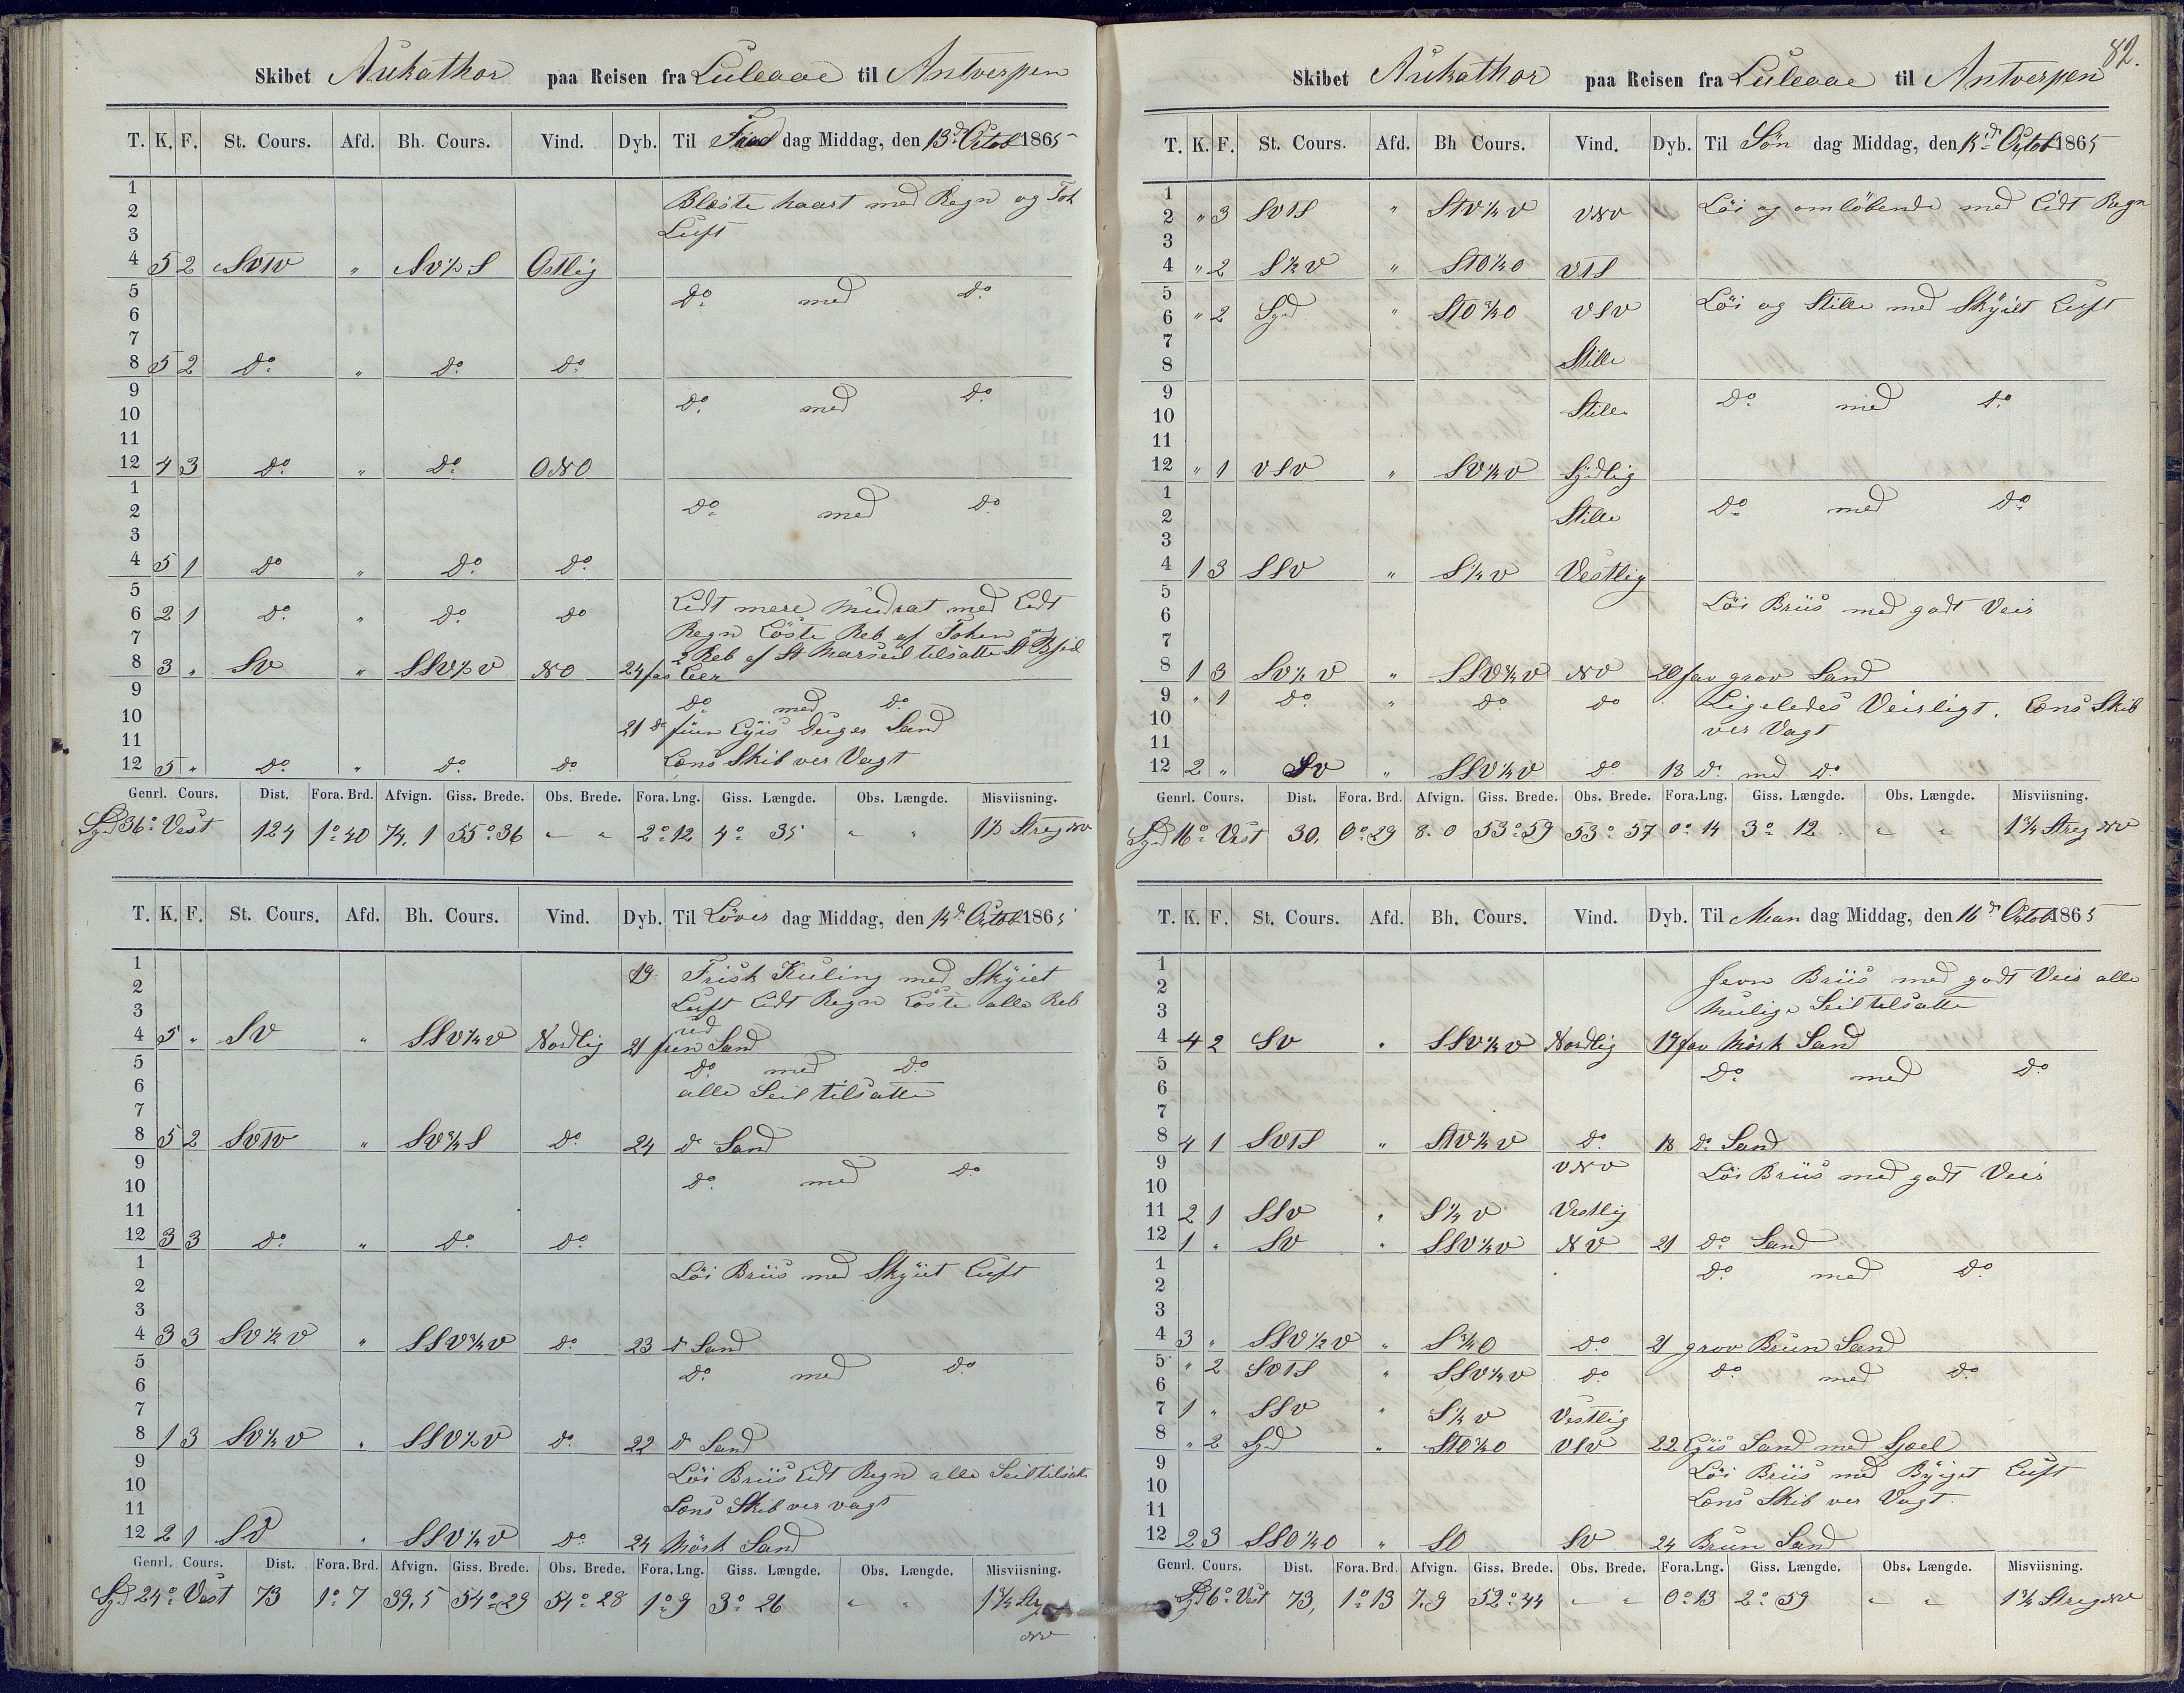 Skibet Aukathor paa Reisen fra Luleaae til Antverpen
T. K. F. St. Cours. Afd. Bh. Cours. Vind. Dyb. Til Fredag Middag, den 13d Octob 1865
1 Blæste haart med Regn og Tok
2 Luft
3
4 5 2 SvTv " Sv½S Ostlig
5 Do med Do
6
7
8 5 2 Do " Do Do
9 Do med Do
10
11
12 4 3 Do " Do ONO
1
2 Do med Do
3
4 5 1 Do " Do Do
5 Lidt mere med Lidt
6 2 1 Do " Do Do
7 Regn Löste Reb af Foken og
2 Reb af St Marseil tilsatte St
8 3 " Sv " SSV½V NO 24 fav Leer
9 Do med Do
10 21 Do fiin Lyis Sand
11 Lens Skib ver Vagt
12 5 " Do " Do Do
Genrl. Cours. Dist. Fora. Brd. Afvign. Giss. Brede. Obs. Brede. Fora. Lng. Giss. Længde. Obs. Længde. Misviisning.
Syd 36° Vest 124 1°40 74,1 55°36 " " 2°12 4° 35 " " 1½ Streg NV
T. K. F. St. Cours. Afd. Bh. Cours. Vind. Dyb. Til Löverdag Middag, den 14d Octob 1865
1 19 Frisk Kuling med Skyiet
2 Luft Lidt Regn Löste alle Reb
3 ud
4 5 " SV " SSV¼V Nordlig 21 fiin Sand
5 Do med Do
6 alle Seil tilsatte
7
8 5 2 SvTv " SV¾S Do 24 Do Sand
9 Do med Do
10
11
12 3 3 Do " Do Do
1 Löi Briis med Skyiet Luft
2
3
4 3 3 SV½V " SSV¾V Do 23 Do Sand
5 Do med Do
6
7
8 1 3 SV¼V " SSV½V Do 22 Do Sand
9 Löi Briis Lidt Regn alle Seil tilsat
10
11 Lens Skib ver vagt
12 2 1 SV " SSV¼V Do 24 Mörk Sand
Genrl. Cours. Dist. Fora. Brd. Afvign. Giss. Brede. Obs. Brede. Fora. Lng. Giss. Længde. Obs. Længde. Misviisning.
Syd 24° Vest 73 1°7 39,5 54°29 54°28 1°9 3° 26 " " 1¾ Str
NV
82.
Skibet Aukathor paa Reisen fra Luleaae til Antverpen
T. K. F. St. Cours. Afd. Bh Cours. Vind. Dyb. Til Söndag Middag, den 15d Octob 1865
1 Löi og omlöbende med Lidt Regn
2 " 3 SVTS " STV¼V VNV
3
4 " 2 S½V " STO¼O VTS
5 Löi og Stille med Skyiet Luft
6 " 2 Syd " STO¾O VSV
7
8 Stille
9 Do med Do
10 Stille
11
12 " 1 VSV " SV¼V Sydlig
1 Do med Do
2 Stille
3
4 1 3 SSV " S¼V Vestlig
5 Löi Briis med godt Veir
6
7
8 1 3 SV½V " SSV¾V NV 20 fav grov Sand
9 " 1 Do " Do Do Ligeledes Veirligt. Lens Skib
10 ver Vagt
11
12 2 " SV " SSV¼V Do 13 Do med Do
Genrl. Cours. Dist. Fora. Brd. Afvign. Giss. Brede. Obs. Brede. Fora. Lng. Giss. Længde. Obs. Længde. Misviisning.
Syd 16° Vest 30, 0°29 8.0 53°59 53°57 0°14 3° 12 " " 1¾ Streg NV
T. K. F. St. Cours. Afd. Bh. Cours. Vind. Dyb. Til Mandag Middag, den 16d Octob 1865
1 Jevn Briis med godt Veir alle
2
3 mulige Seil tilsatte
4 4 2 SV " SSV¼V Nordlig 19 fav Mörk Sand
5 Do med Do
6
7
8 4 1 SVTS " STV¼V Do 18 Do Sand
9 VNV Löi Briis med godt Veir
10
11 2 1 SSV " S¼V Vestlig
12 1 " SV " SSV¼V NV 21 Do Sand
1 Do med Do
2
3
4 3 " SSV½V " S¾O Do 21 grov Brun Sand
5 " 2 SVTS " SSV¼V Do Do med Do
6
7 1 " SSV " S¼V Vestlig
8 " 2 Syd " STO¾O VSV 22 Lyis Sand med Sjæel
9 Löi Briis med Byiget Luft
10
11 Lens Skib ver Vagt.
12 2 3 SSO¼O " SO SV 24 Brun Sand
Genrl. Cours. Dist. Fora. Brd. Afvign. Giss. Brede. Obs. Brede. Fora. Lng. Giss. Længde. Obs. Længde. Misviisning.
Syd 6° Vest 73, 1°13 7.9 52°44 " " 0°13 2° 59 " " 1¾ Streg NV